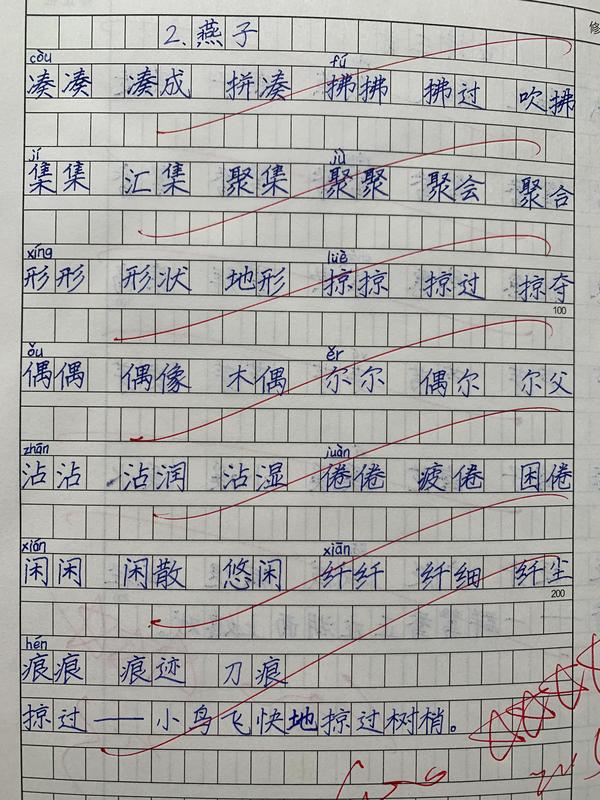 修
2.燕子
còu fú
凑凑 凑成 拼凑 拂拂 拂过 吹拂
jí jù
集集 汇集 聚集 聚聚 聚会 聚合
xíng lüè
形形 形状 地形 掠掠 掠过 掠夺
100
ǒu ěr
偶偶 偶像 木偶 尔尔 偶尔 尔父
zhān juàn
沾沾 沾润 沾湿 倦倦 疲倦 困倦
xián xiān
闲闲 闲散 悠闲 纤纤 纤细 纤尘
200
hén
痕痕 痕迹 刀痕
掠过——小鸟飞快地掠过树梢。